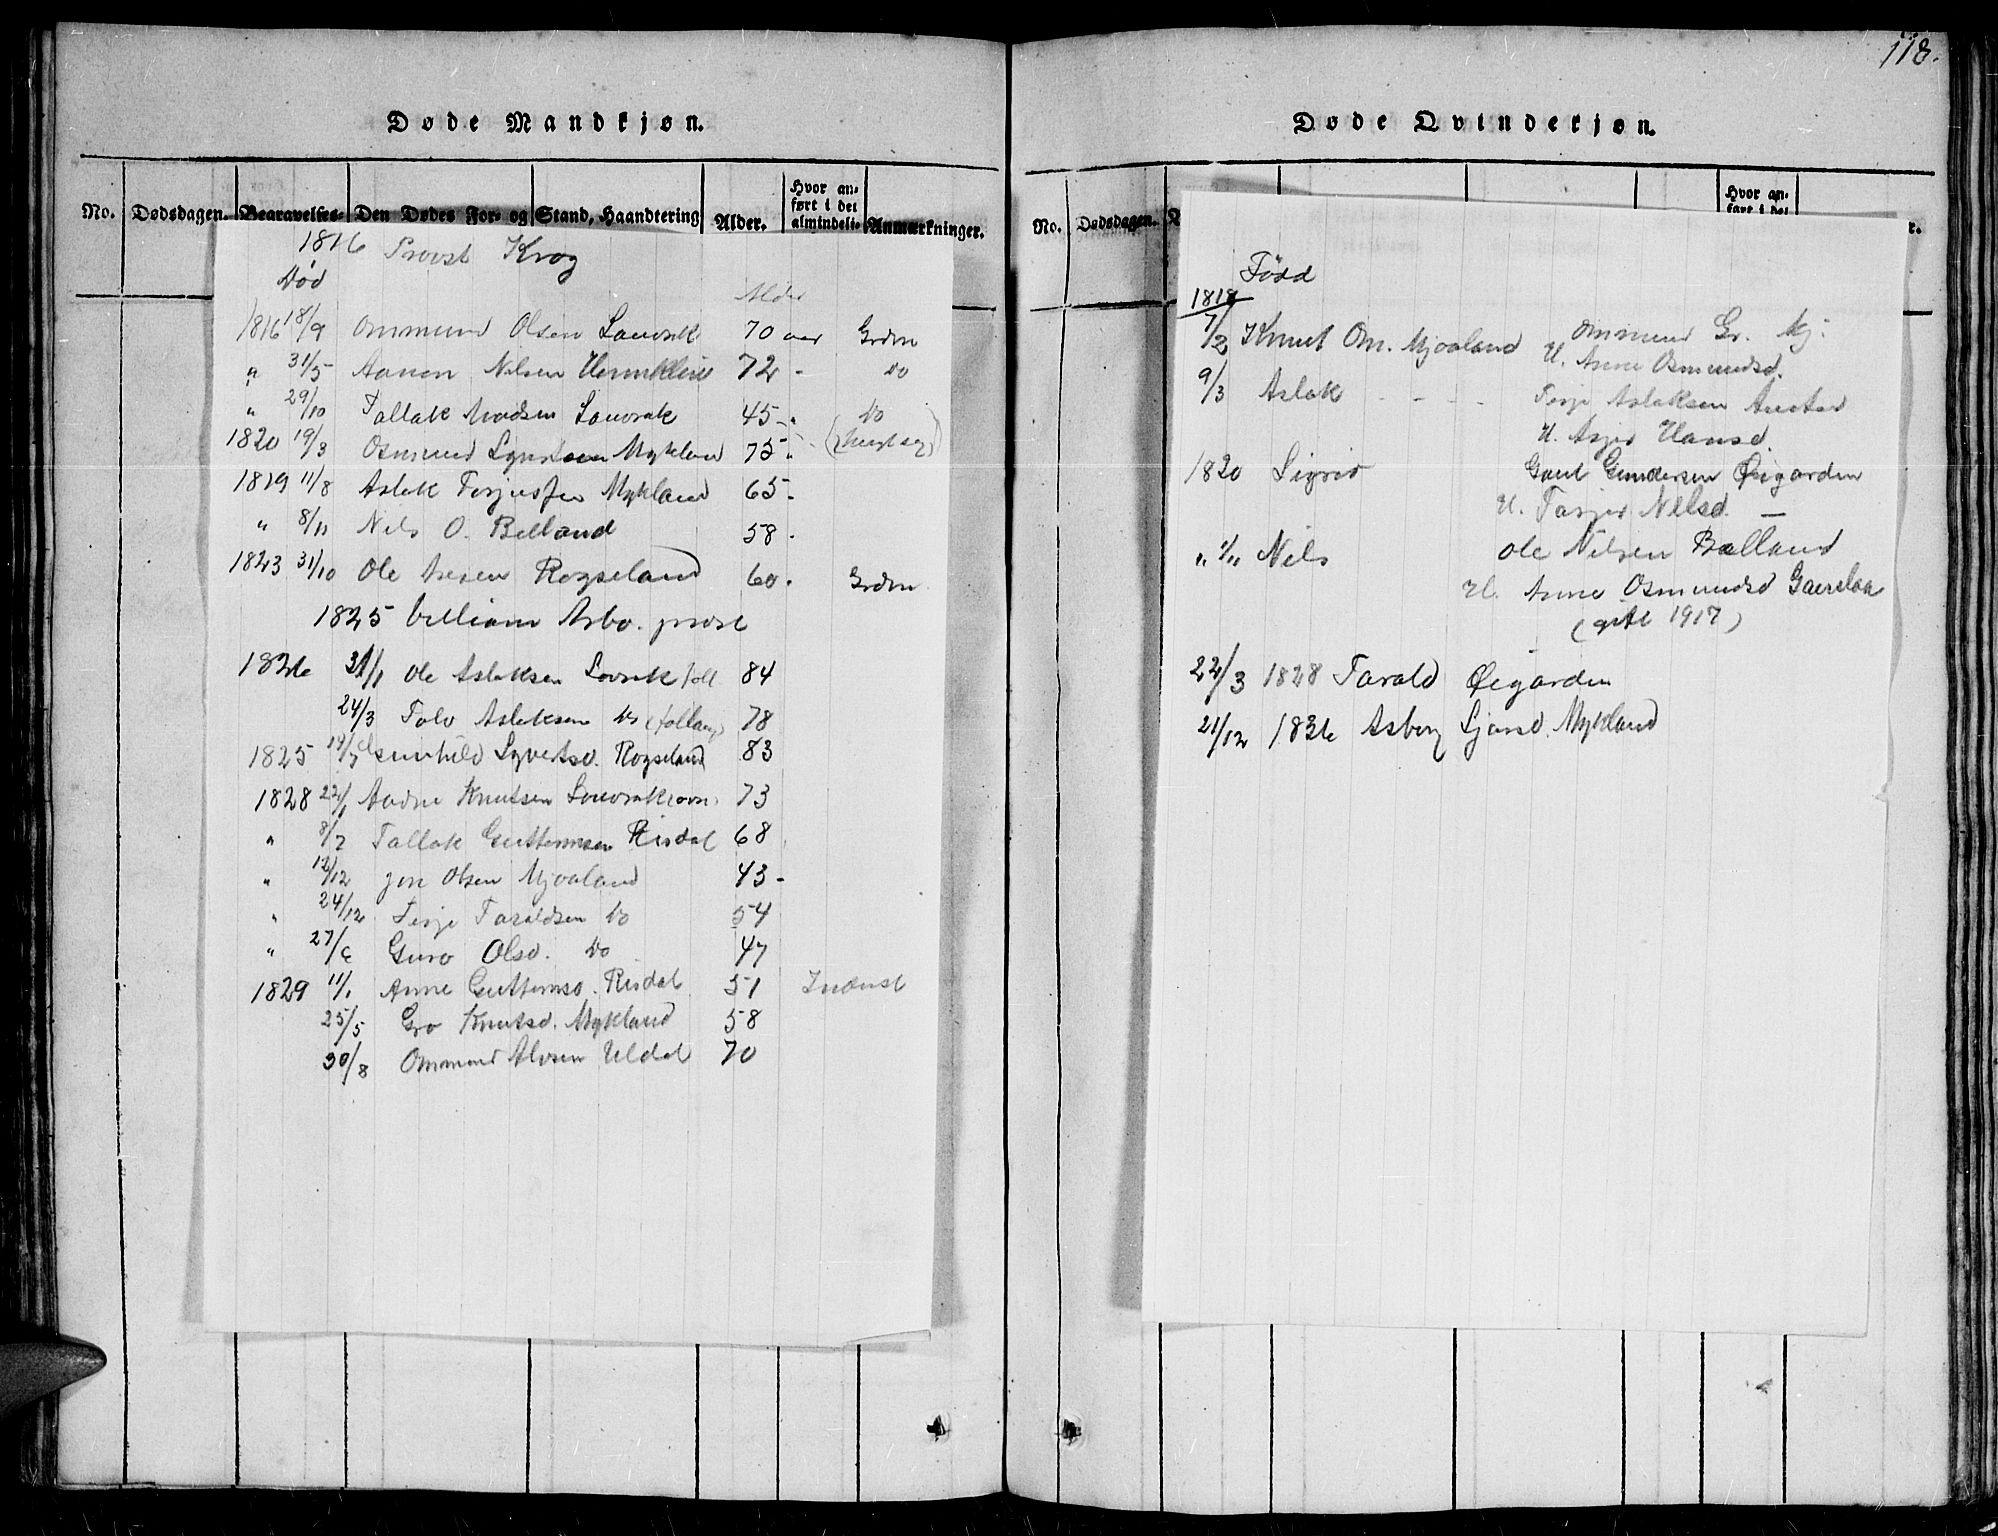 118.
Døde Mandkjøn.
No. Dødsdagen. Begravelses- Den Dødes For- og Stand, Haandtering Alder. Hvor an-
ført i det
almindeli- Anmærkninger.
1816 Provst Krog
Død
Alder
1816 18/9 Ommund Olsen Lauvrak 70 aar Grdm
" 31/5 Aanen Nilsen 72 - Do
" 29/10 Tallak Madsen Lauvrak 45 - Do
1820 19/3 Osmund Mykland 75
1819 11/8 Aslak Terjussen Mykland 65 -
" 8/11 Nils O. Belland 58 -
1823 31/10 Ole Rogseland 60 - Grdm
1825 William Arbo. prost
1826 31/1 Ole Aslaksen Lovrak 84
24/3 Tolv Aslaksen Do 78
1825 Gunhild Syvertsd. Rogseland 83
1828 22/1 Andre Knutsen 73
" 8/7 Tallak Guttormsen Risdal 68
" 12/12 Jon Olsen Mjaaland 43 -
" 24/12 Terje Taraldsen Do 54
" 27/6 Guro Olsd. Do 47
1829 11/1 Anne Guttormsd. Risdal 51 Inderst
25/5 Gro Knutsd. Mykland 58
30/8 Ommund Alvsen Uldal 70
Døde Qvindekjøn.
No. Dødsdagen. Hvor an-
ført i det
Född
1818
7/2 Knut Om. Mjaaland Ommund Gr. Mj.
H. Anne Osmundsd.
9/3 Aslak - - - - Terje Aslaksen
H. Asjer Hansd.
1820 Sigrid Gaut Gundersen Øigarden
H. Tarjer Nilsd. —
" 1/11 Nils Ole Nilsen Balland
H. Anne Osmundsd
(gift 1917)
22/3 1828 Tarald Øigarden
21/12 1826 Asberg Mykland